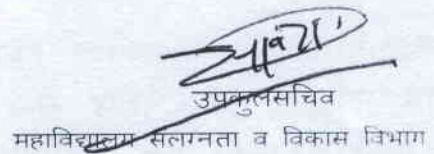 उपकुलसचिव
महाविद्यालय सलग्नता व विकास विभाग